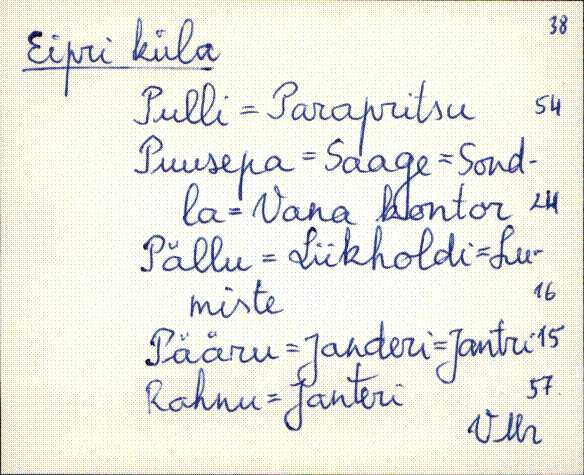 38
Eipri küla
Pulli = Parapritsu 54
Puusepa = Saage = Sond-
la = Vana kontor 24
Pällu = Liikholdi = Lu-
miste
16
Pääru = Janderi = Jantri 15
Rahnu = Janteri 57.